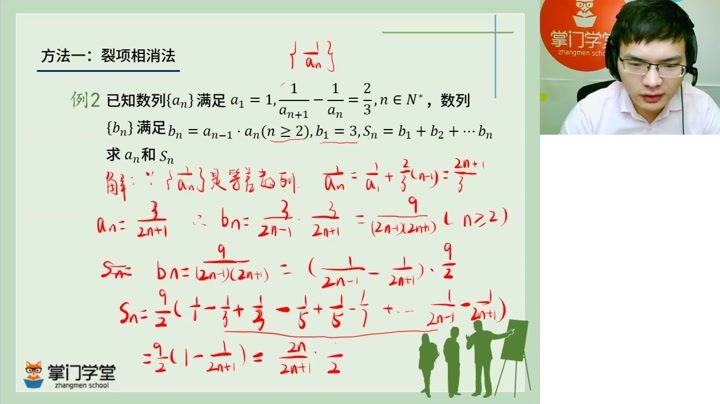 方法一：裂项相消法
{1/an}
例2 已知数列{aₙ} 满足 a₁ = 1, 1/aₙ₊₁ − 1/aₙ = 2/3, n ∈ N*，数列
{bₙ} 满足 bₙ = aₙ₋₁ · aₙ(n ≥ 2), b₁ = 3, Sₙ = b₁ + b₂ + ⋯ bₙ
求 aₙ和 Sₙ
解：∵ {1/an} 是等差数列 1/an = 1/a₁ + 2/3(n-1) = 2n+1/3
an = 3/2n+1 ∴ bn = 3/2n-1 · 3/2n+1 = 9/(2n-1)(2n+1) (n≥2)
Sn= bn = 9/(2n-1)(2n+1) = (1/2n-1 - 1/2n+1) · 9/2
Sn = 9/2 (1/1 - 1/3 + 1/3 - 1/5 + 1/5 - 1/7 + ... 1/2n-1 - 1/2n+1)
= 9/2 (1 - 1/2n+1) = 2n/2n+1 · /2
掌门学堂
zhangmen school
掌门学堂
zhangmen sch